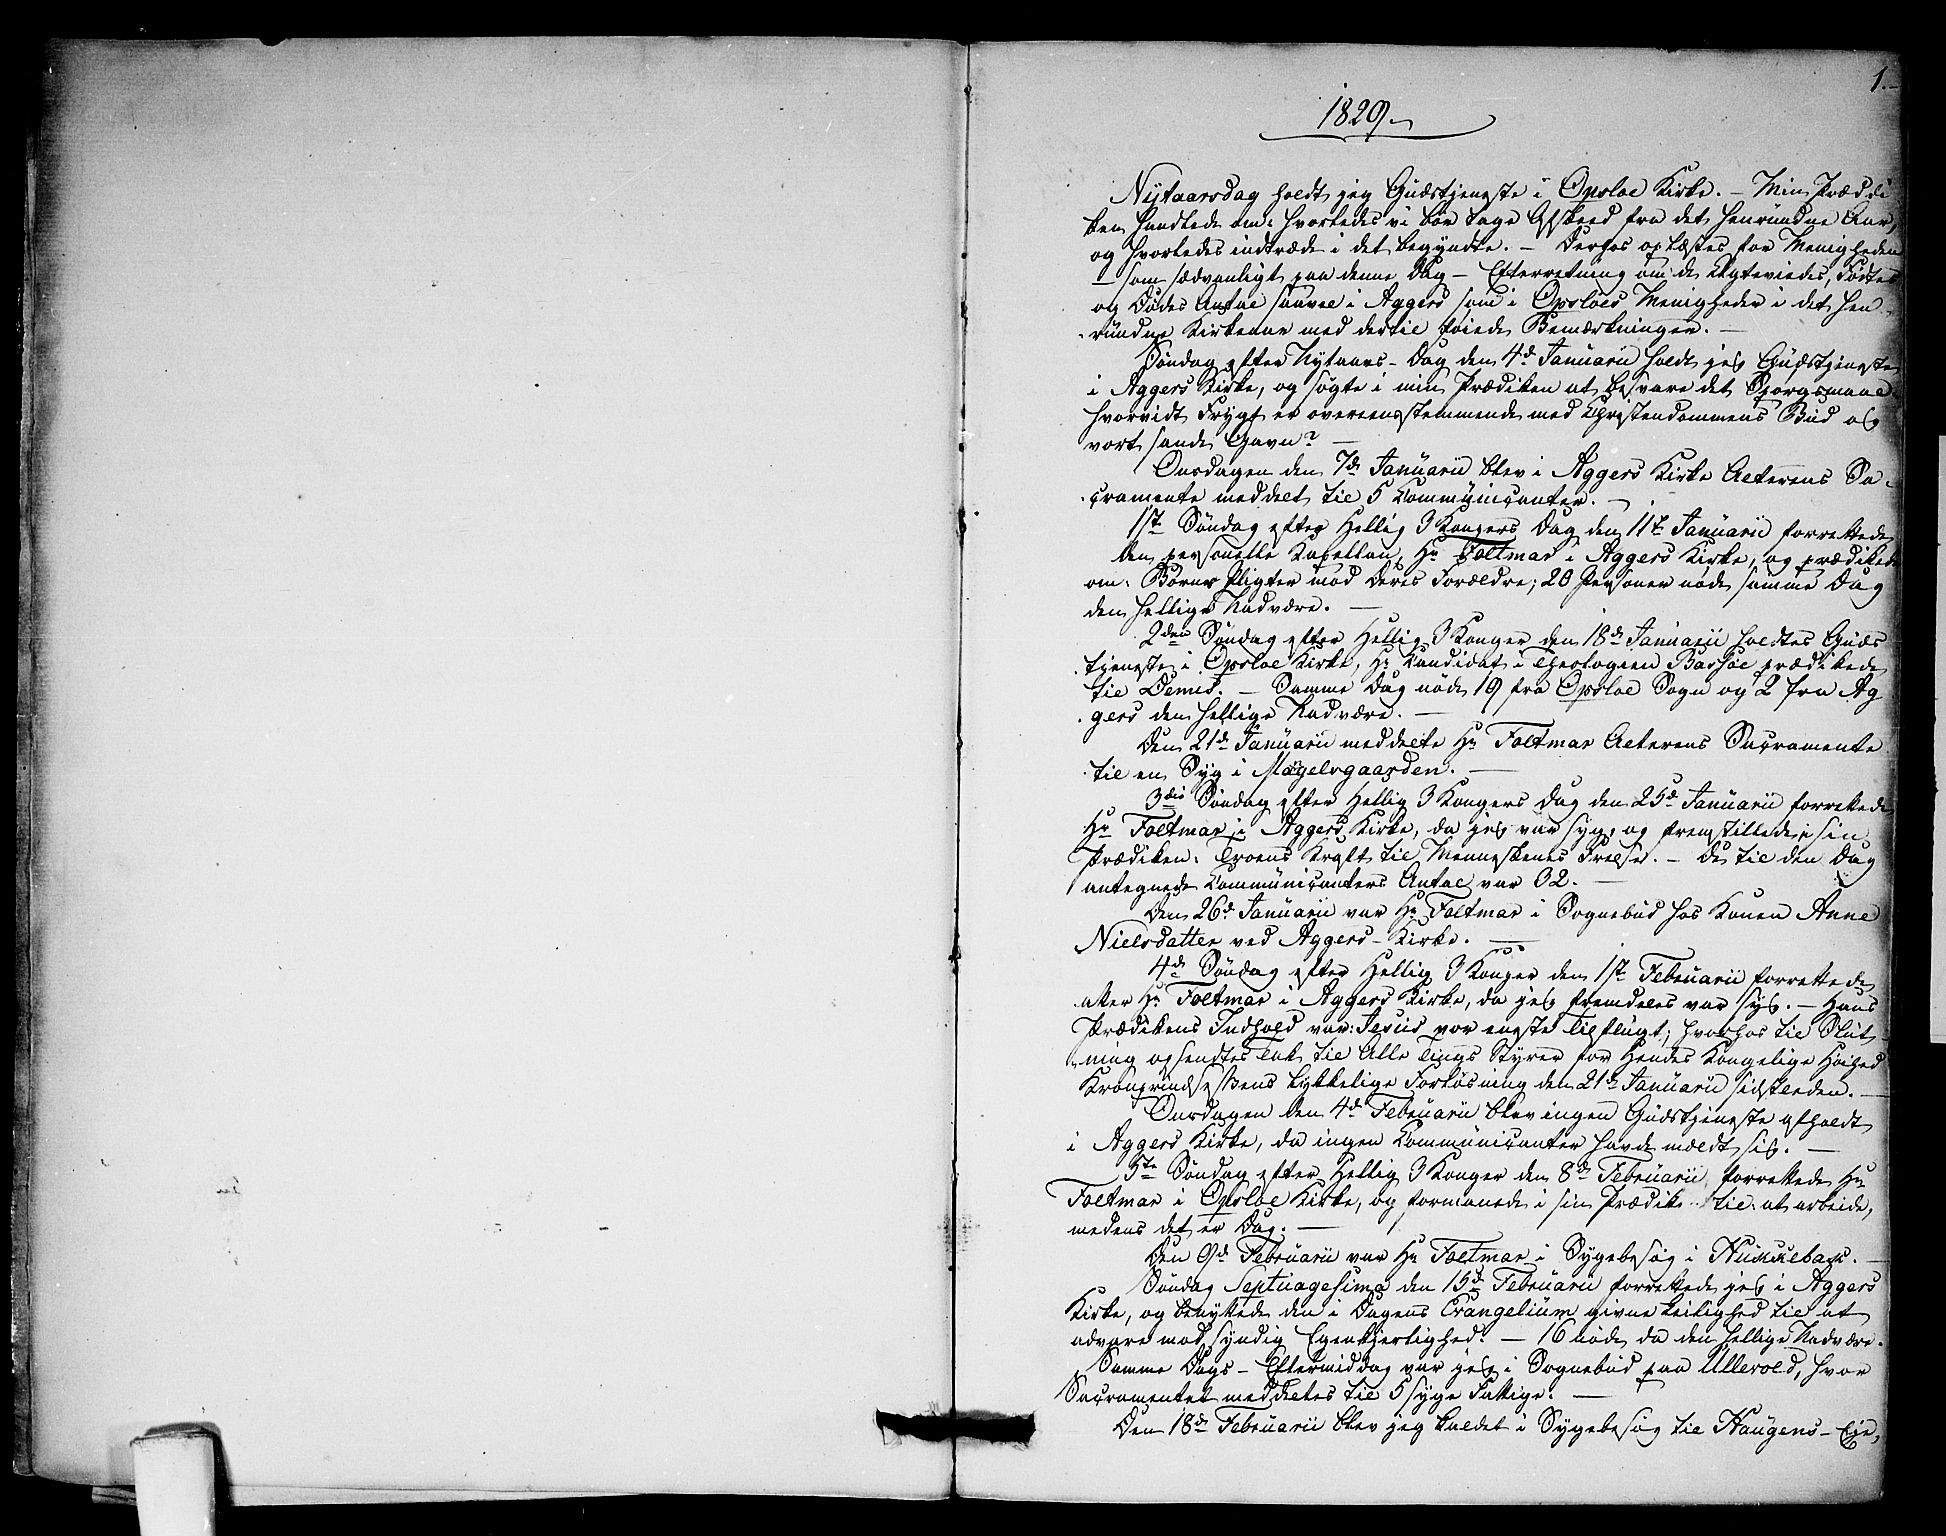 1.
1829
Nÿtaarsdag holdt jeg Gudstjeneste i Opsloe Kirke. – Min Prædi
ken handlede om: hvorledes vi bör tage Afskeed fra det henrundne Aar,
og hvorledes indtræde i det begyndte. – Derpaa oplæstes for Menigheden
– som sædvanligt paa denne Dag – Efterretning om de Ægteviedes, Födtes
og Dödes Antal saavel i Aggers som i Opsloes Menigheder i det hen
rundne Kirkeaar med dertil föiede Bemærkninger. –
Söndag efter Nytaars-Dag den 4de Januarii holdt jeg Gudstjeneste
i Aggers Kirke, og sögte i min Prædiken at besvare det Spørgsmaal
hvorvidt Frygt er overeensstemmende med Christendommens Bud og
vort sande Gavn? –
Onsdagen den 7de Januarii blev i Aggers Kirke Alterens Sa-
cramente meddelt til 5 Communicanter. –
1ste Söndag efter Hellig 3 Kongers Dag den 11te Januarii forrettede
den personelle Kapellan, Hr Foltmar i Aggers Kirke, og prædikede
om: Börns Pligter mod deres Forældre; 20 Personer nöde samme Dag
den hellige Nadvere. –
2den Söndag efter Hellig 3 Konger den 18de Januarii holdtes Guds
tjeneste i Opsloe Kirke, Hr Candidat i Theologien Bassöe prædikede
til Demis. – Samme Dag nöde 19 fra Opsloe Sogn og 2 fra Ag
gers den hellige Nadvere. –
Den 21de Januarii meddelte Hr Foltmar Alterens Sacramente
til en Syg i Møgelsgaarden. –
3die Söndag efter Hellig 3 Kongers Dag den 25de Januarii forrettede
Hr Foltmar i Aggers Kirke, da jeg var syg, og fremstillede i sin
Prædiken: Troens Kraft til Menneskenes Frelse. – De til den Dag
antegnede Communicanters Antal var 32. –
Den 26de Januarii var Hr Foltmar i Sognebud hos Konen Anne
Nielsdatter ved Aggers-Kirke. –
4de Söndag efter Hellig 3 Konger den 1ste Februarii forrettede
atter Hr Foltmar i Aggers Kirke, da jeg fremdeles var syg. – Hans
Prædikens Indhold var: Jesus vor eneste Tilflugt; hvorhos til Slut-
ning opsendtes Tak til Alle Tings Styrer for Hendes Kongelige Höihed
Kronprindsessens lykkelige Forlösning den 21de Januarii sidstleden. –
Onsdagen den 4de Februarii blev ingen Gudstjeneste afholdt
i Aggers Kirke, da ingen Communicanter havde meldt sig. –
5te Söndag efter Hellig 3 Konger den 8de Februarii forrettede Hr
Foltmar i Opsloe Kirke, og formanede i sin Prædike til: at arbeide,
medens det er Dag. –
Den 9de Februarii var Hr Foltmar i Sygebesög i Nukkebak. –
Söndag Septuagesima den 15de Februarii forrettede jeg i Aggers
Kirke, og benyttede den i Dagens Evangelium givne Leilighed til at
advare mod syndig Egenkjerlighed. – 16 nöde da den hellige Nadvere.
Samme Dags-Eftermiddag var jeg i Sognebud paa Ullevold, hvor
Sacramentet meddeltes til 5 syge Fattige. –
Den 18de Februarii blev jeg kaldet i Sygebesög til Haugens-Eje,